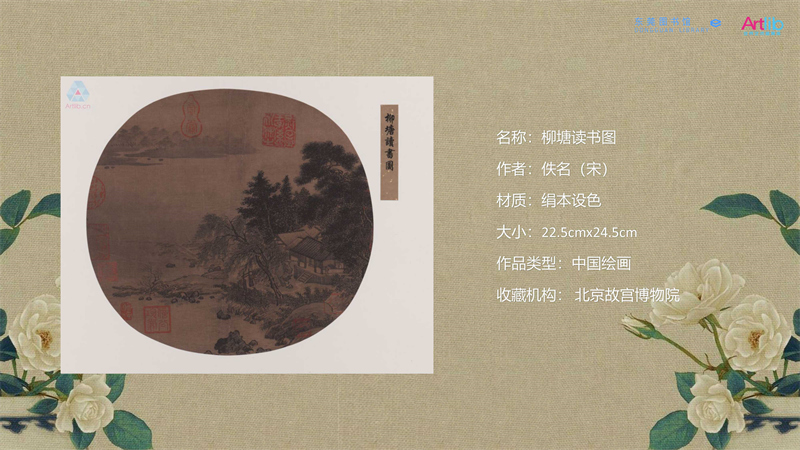 Artlib
Artlib.cn
柳塘讀書圖
名称：柳塘读书图
作者：佚名（宋）
材质：绢本设色
大小：22.5cmx24.5cm
作品类型：中国绘画
收藏机构： 北京故宫博物院